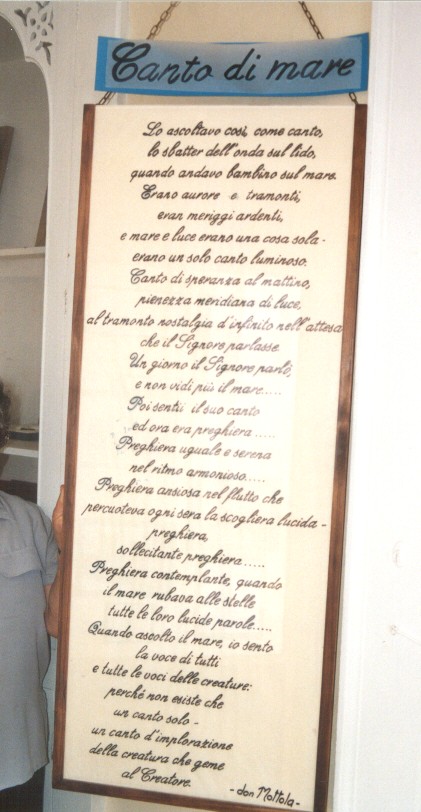 Canto di mare
Lo ascoltavo così, come canto,
lo sbatter dell'onda sul lido,
quando andavo bambino sul mare.
Erano aurore e tramonti,
eran meriggi ardenti,
e mare e luce erano una cosa sola -
erano un solo canto luminoso.
Canto di speranza al mattino,
pienezza meridiana di luce,
al tramonto nostalgia d'infinito nell'attesa
che il Signore parlasse.
Un giorno il Signore parlò,
e non vidi più il mare.....
Poi sentii il suo canto
ed ora era preghiera .....
Preghiera uguale e serena
nel ritmo armonioso.....
Preghiera ansiosa nel flutto che
percuoteva ogni sera la scogliera lucida -
preghiera,
sollecitante preghiera.....
Preghiera contemplante, quando
il mare rubava alle stelle
tutte le loro lucide parole.....
Quando ascolto il mare, io sento
la voce di tutti
e tutte le voci delle creature:
perché non esiste che
un canto solo -
un canto d'implorazione
della creatura che geme
al Creatore.
- don Mottola -